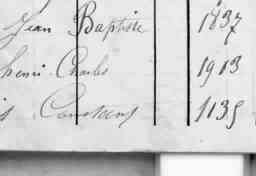 Jean Baptiste 1837
henri Charles 1913
Constant 1135